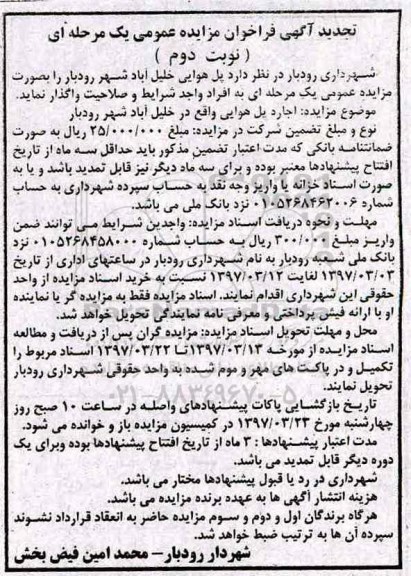 تجدید آگهی فراخوان مزایده عمومی یک مرحله ای
( نوبت دوم )
شهرداری رودبار در نظر دارد پل هوایی خلیل آباد شهر رودبار را بصورت
مزایده عمومی یک مرحله ای به افراد واجد شرایط و صلاحیت واگذار نماید.
موضوع مزایده: اجاره پل هوایی واقع در خلیل آباد شهر رودبار
نوع و مبلغ تضمین شرکت در مزایده: مبلغ ۲۵/۰۰۰/۰۰۰ ریال به صورت
ضمانتنامه بانکی که مدت اعتبار تضمین مذکور باید حداقل سه ماه از تاریخ
افتتاح پیشنهادها معتبر بوده و برای سه ماه دیگر نیز قابل تمدید باشد و یا به
صورت اسناد خزانه یا واریز وجه نقد به حساب سپرده شهرداری به حساب
شماره ۰۱۰۵۲۶۸۴۶۲۰۰۶ نزد بانک ملی می باشد.
مهلت و نحوه دریافت اسناد مزایده: واجدین شرایط می توانند ضمن
واریز مبلغ ۳۰۰/۰۰۰ ریال به حساب شماره ۰۱۰۵۲۶۸۴۵۸۰۰۰ نزد
بانک ملی شعبه رودبار به نام شهرداری رودبار در ساعتهای اداری از تاریخ
۱۳۹۷/۰۳/۰۳ لغایت ۱۳۹۷/۰۳/۱۲ نسبت به خرید اسناد مزایده از واحد
حقوقی این شهرداری اقدام نمایند. اسناد مزایده فقط به مزایده گر یا نماینده
او با ارائه فیش پرداختی و معرفی نامه نمایندگی تحویل خواهد شد.
محل و مهلت تحویل اسناد مزایده: مزایده گران پس از دریافت و مطالعه
اسناد مزایده از مورخه ۱۳۹۷/۰۳/۱۳ تا ۱۳۹۷/۰۳/۲۲ اسناد مربوط را
تکمیل و در پاکت های مهر و موم شده به واحد حقوقی شهرداری رودبار
تحویل نمایند.
تاریخ بازگشایی پاکات پیشنهادهای واصله در ساعت ۱۰ صبح روز
چهارشنبه مورخ ۱۳۹۷/۰۳/۲۳ در کمیسیون مزایده باز و خوانده می شود.
مدت اعتبار پیشنهادها : ۳ ماه از تاریخ افتتاح پیشنهادها بوده وبرای یک
دوره دیگر قابل تمدید می باشد.
شهرداری در رد یا قبول پیشنهادها مختار می باشد.
هزینه انتشار آگهی ها به عهده برنده مزایده می باشد.
هرگاه برندگان اول و دوم و سوم مزایده حاضر به انعقاد قرارداد نشوند
سپرده آن ها به ترتیب ضبط خواهد شد.
شهردار رودبار – محمد امین فیض بخش